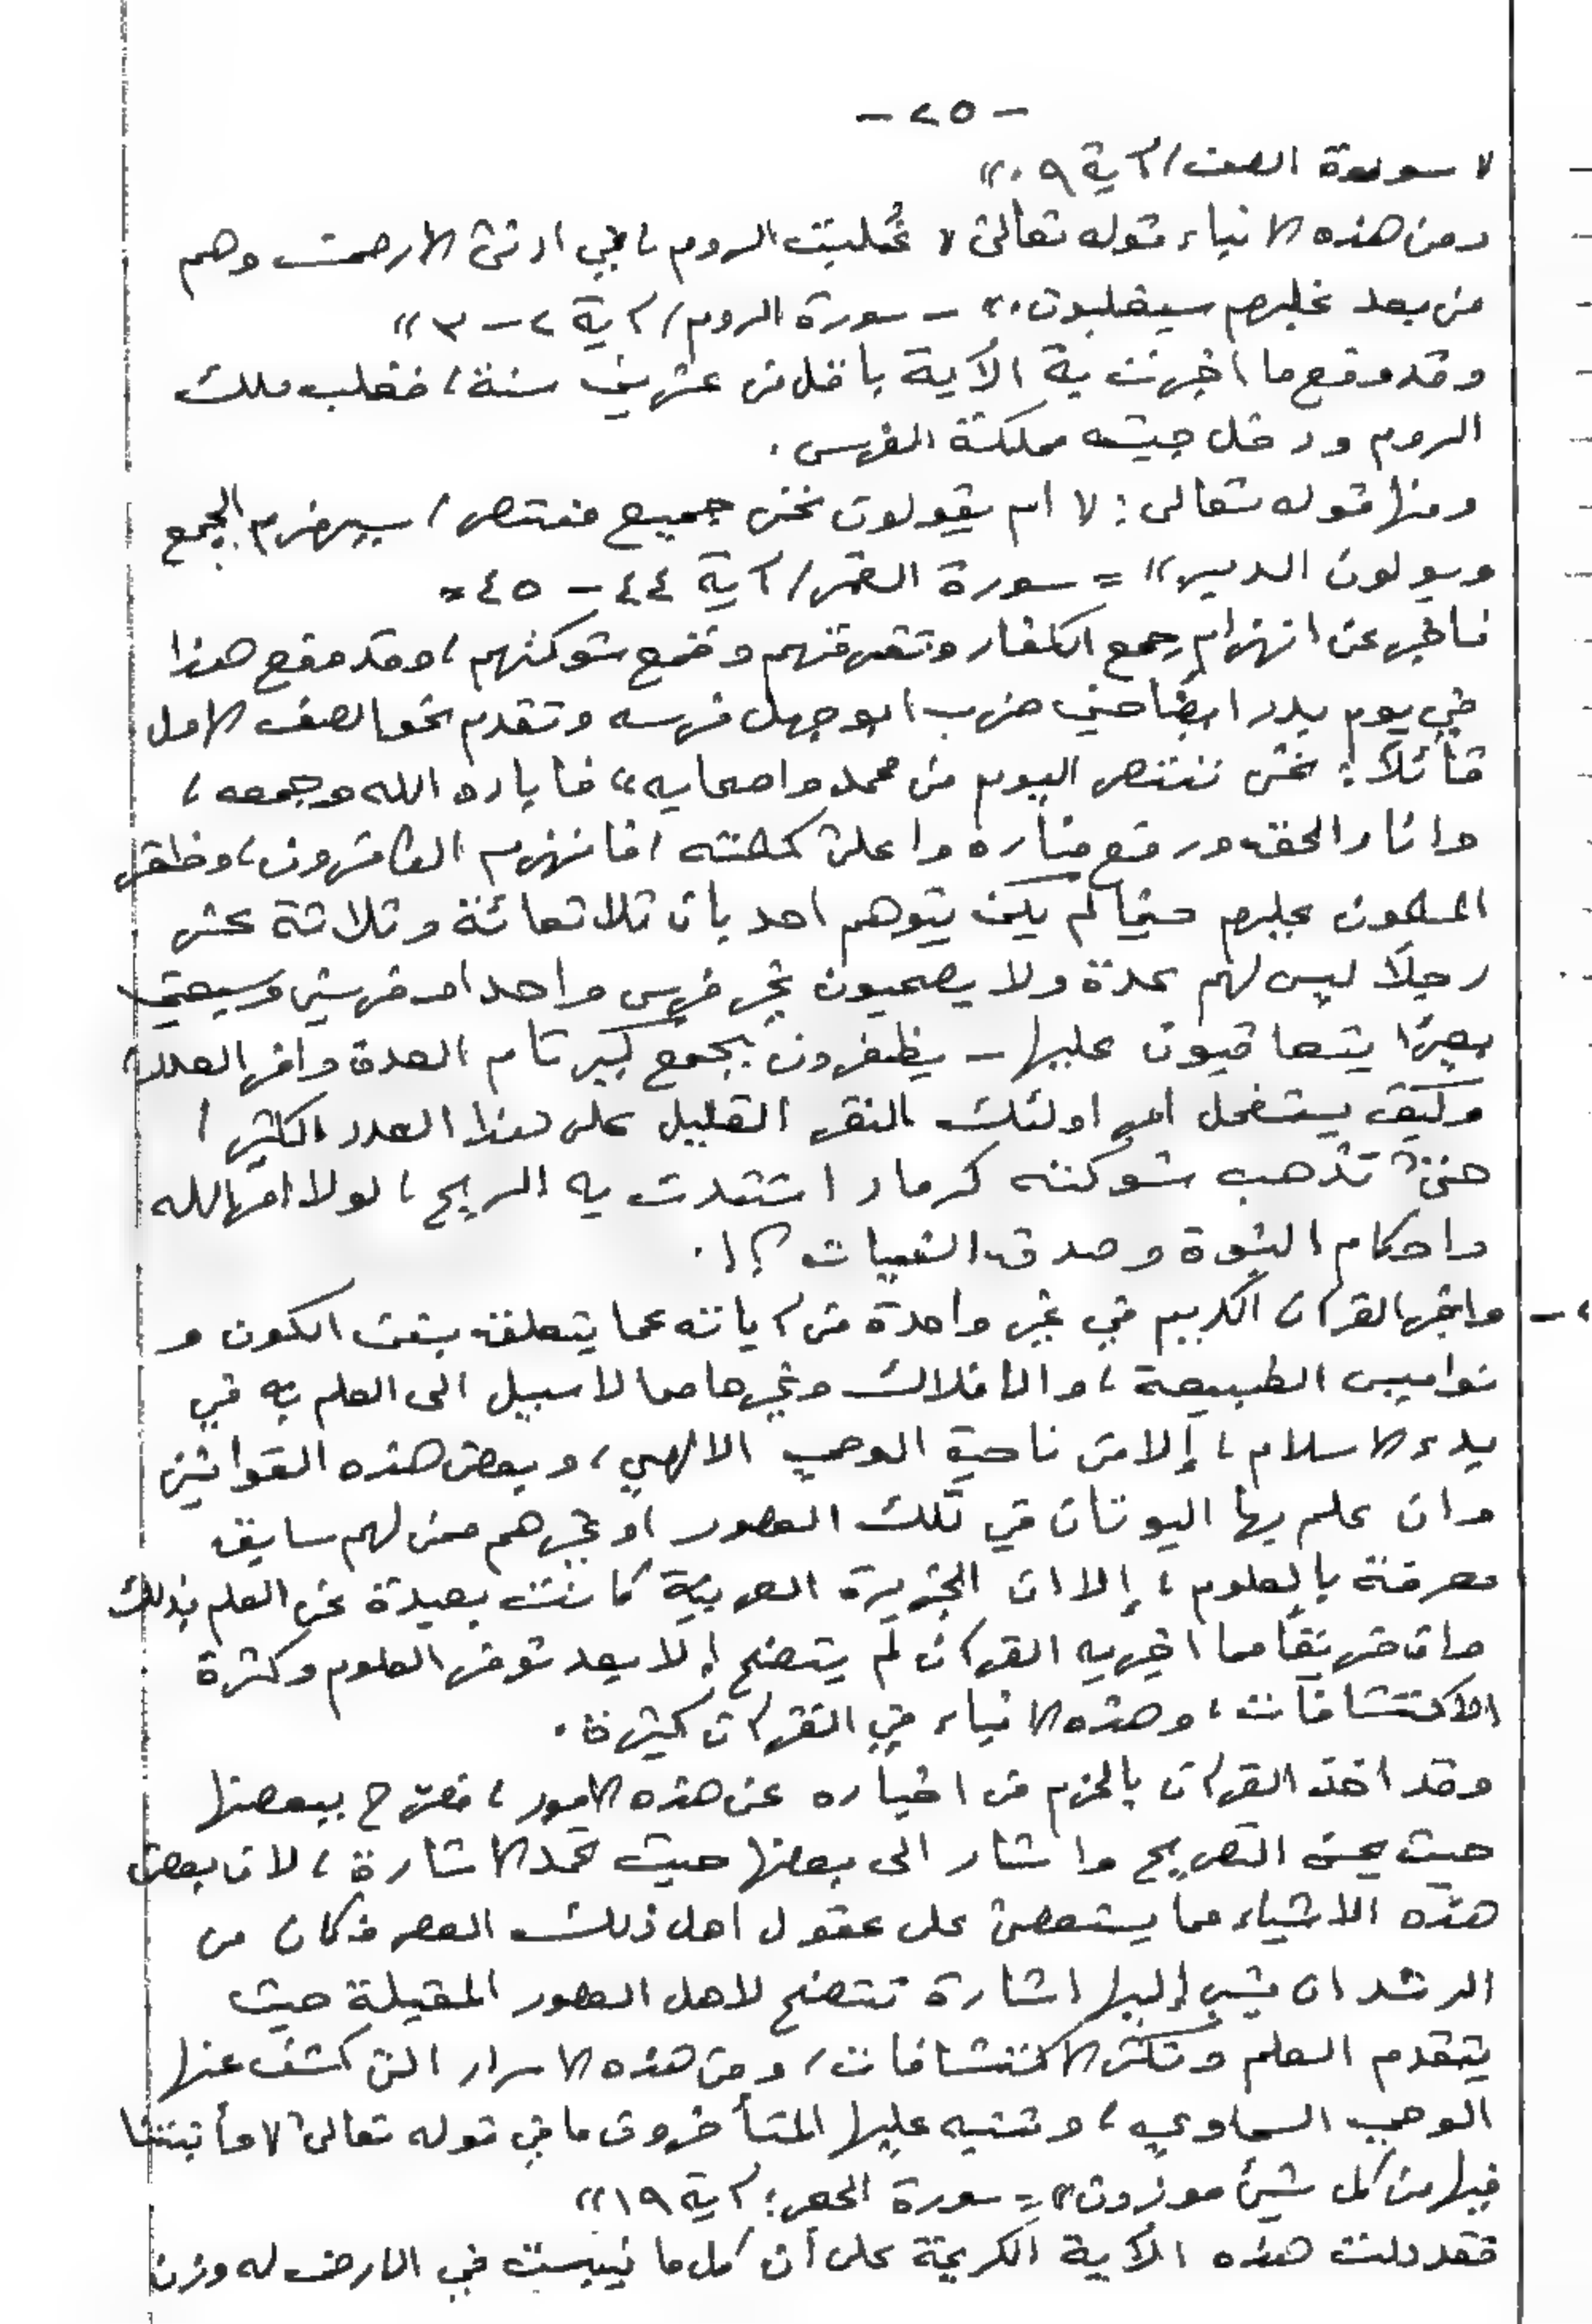 - ٢٥ -
« سورة الصف/آية ٩.»
ومن هذه الانباء قوله تعالى « غُلبت الروم، في ادنى الارض وهم
من بعد غلبهم سيغلبون.» - سورة الروم/آية ٢ - ٣ »
وقد وقع ما اخبرت به الآية باقل من عشر سنة، فغلب ملك
الروم ودخل جيشه مملكة الفرس.
ومنها قوله تعالى: « ام يقولون نحن جميع منتصر/ سيهزم الجمع
ويولون الدبر» = سورة القمر/آية ٤٤ - ٤٥ =
فاخبر عن انهزام جمع الكفار وتفرقهم وقمع شوكتهم، وقد وقع هذا
في يوم بدر ايضا حين ضرب ابو جهل فرسه وتقدم نحو الصف الاول
قائلاً: نحن ننتصر اليوم من محمد واصحابه، فاباده الله وجمعه،
وانار الحق ورفع مناره واعلى كلمته، فانهزم الكافرون، وظفر
المسلمون عليهم حينما لم يكن يتوهم احد بان ثلاثمائة وثلاثة عشر
رجلاً ليس لهم عدة ولا يصحبون غير فرس واحد او فرسين وسبعين
بعيرًا يتعاقبون عليها - يظفرون بجمع كبير تام العدة وافر العدد،
وكيف يستفحل امر اولئك النفر القليل على هذا العدد الكثير/
حتى تذهب شوكته كرماد اشتدت به الريح، لولا امر الله
واحكام النبوة وصدق النيات؟!.
- واخبر القرآن الكريم في غير واحدة من آياته عما يتعلق بسنن الكون و
نواميس الطبيعة، والافلاك وغيرها مما لا سبيل الى العلم به في
بدء الاسلام، إلا من ناحية الوحي الالهي، وبعض هذه القوانين
وان علم بها اليونان في تلك العصور او غيرهم ممن لهم سابق
معرفة بالعلوم، إلا ان الجزيرة العربية كانت بعيدة عن العلم بذلك
وان فريقًا مما اخبر به القرآن لم يتضح إلا بعد توفر العلوم وكثرة
الاكتشافات، وهذه الانباء في القرآن كثيرة.
وقد اخذ القرآن بالحزم في اخباره عن هذه الامور، فصرّح ببعضها
حيث يحسن التصريح واشار الى بعضها حيث تحمد الاشارة، لان بعض
هذه الاشياء مما يستعصى على عقول اهل ذلك العصر فكان من
الرشد ان يشير إليها اشارة تتضح لاهل العصور المقبلة حيث
يتقدم العلم وتكثر الاكتشافات، ومن هذه الاسرار التي كشف عنها
الوحي السماوي، وتنبه عليها المتأخرون ما في قوله تعالى « وأنبتنا
فيها من كل شيئ موزون» = سورة الحجر: آية ١٩»
فقد دلت هذه الآية الكريمة على أن كل ما ينبت في الارض له وزن